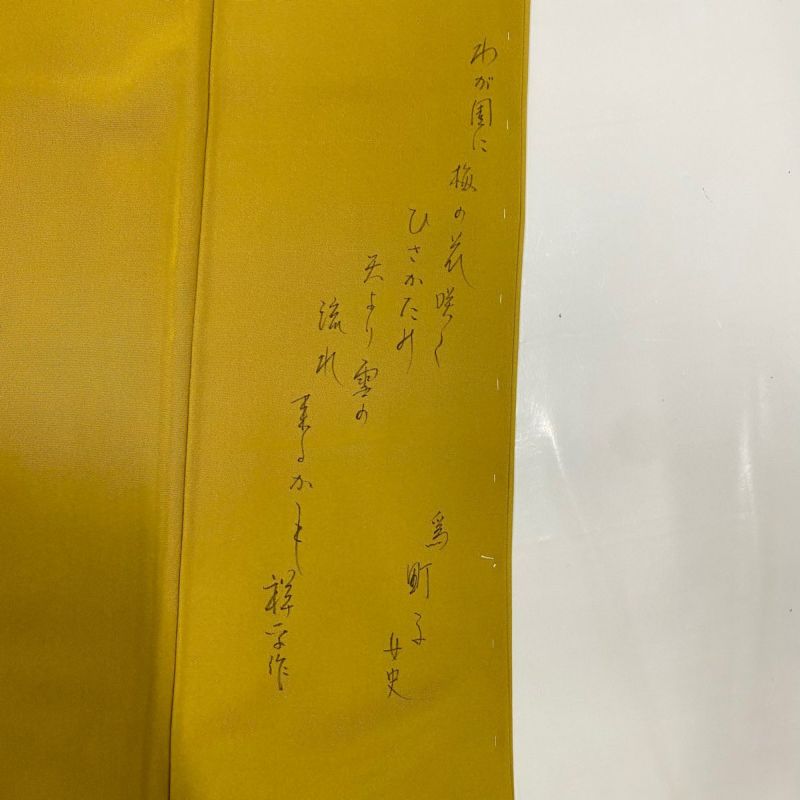 わが園に梅の花咲く
ひさかたの
天より雪の
流れ
来るかも
祥平作
為町子女史